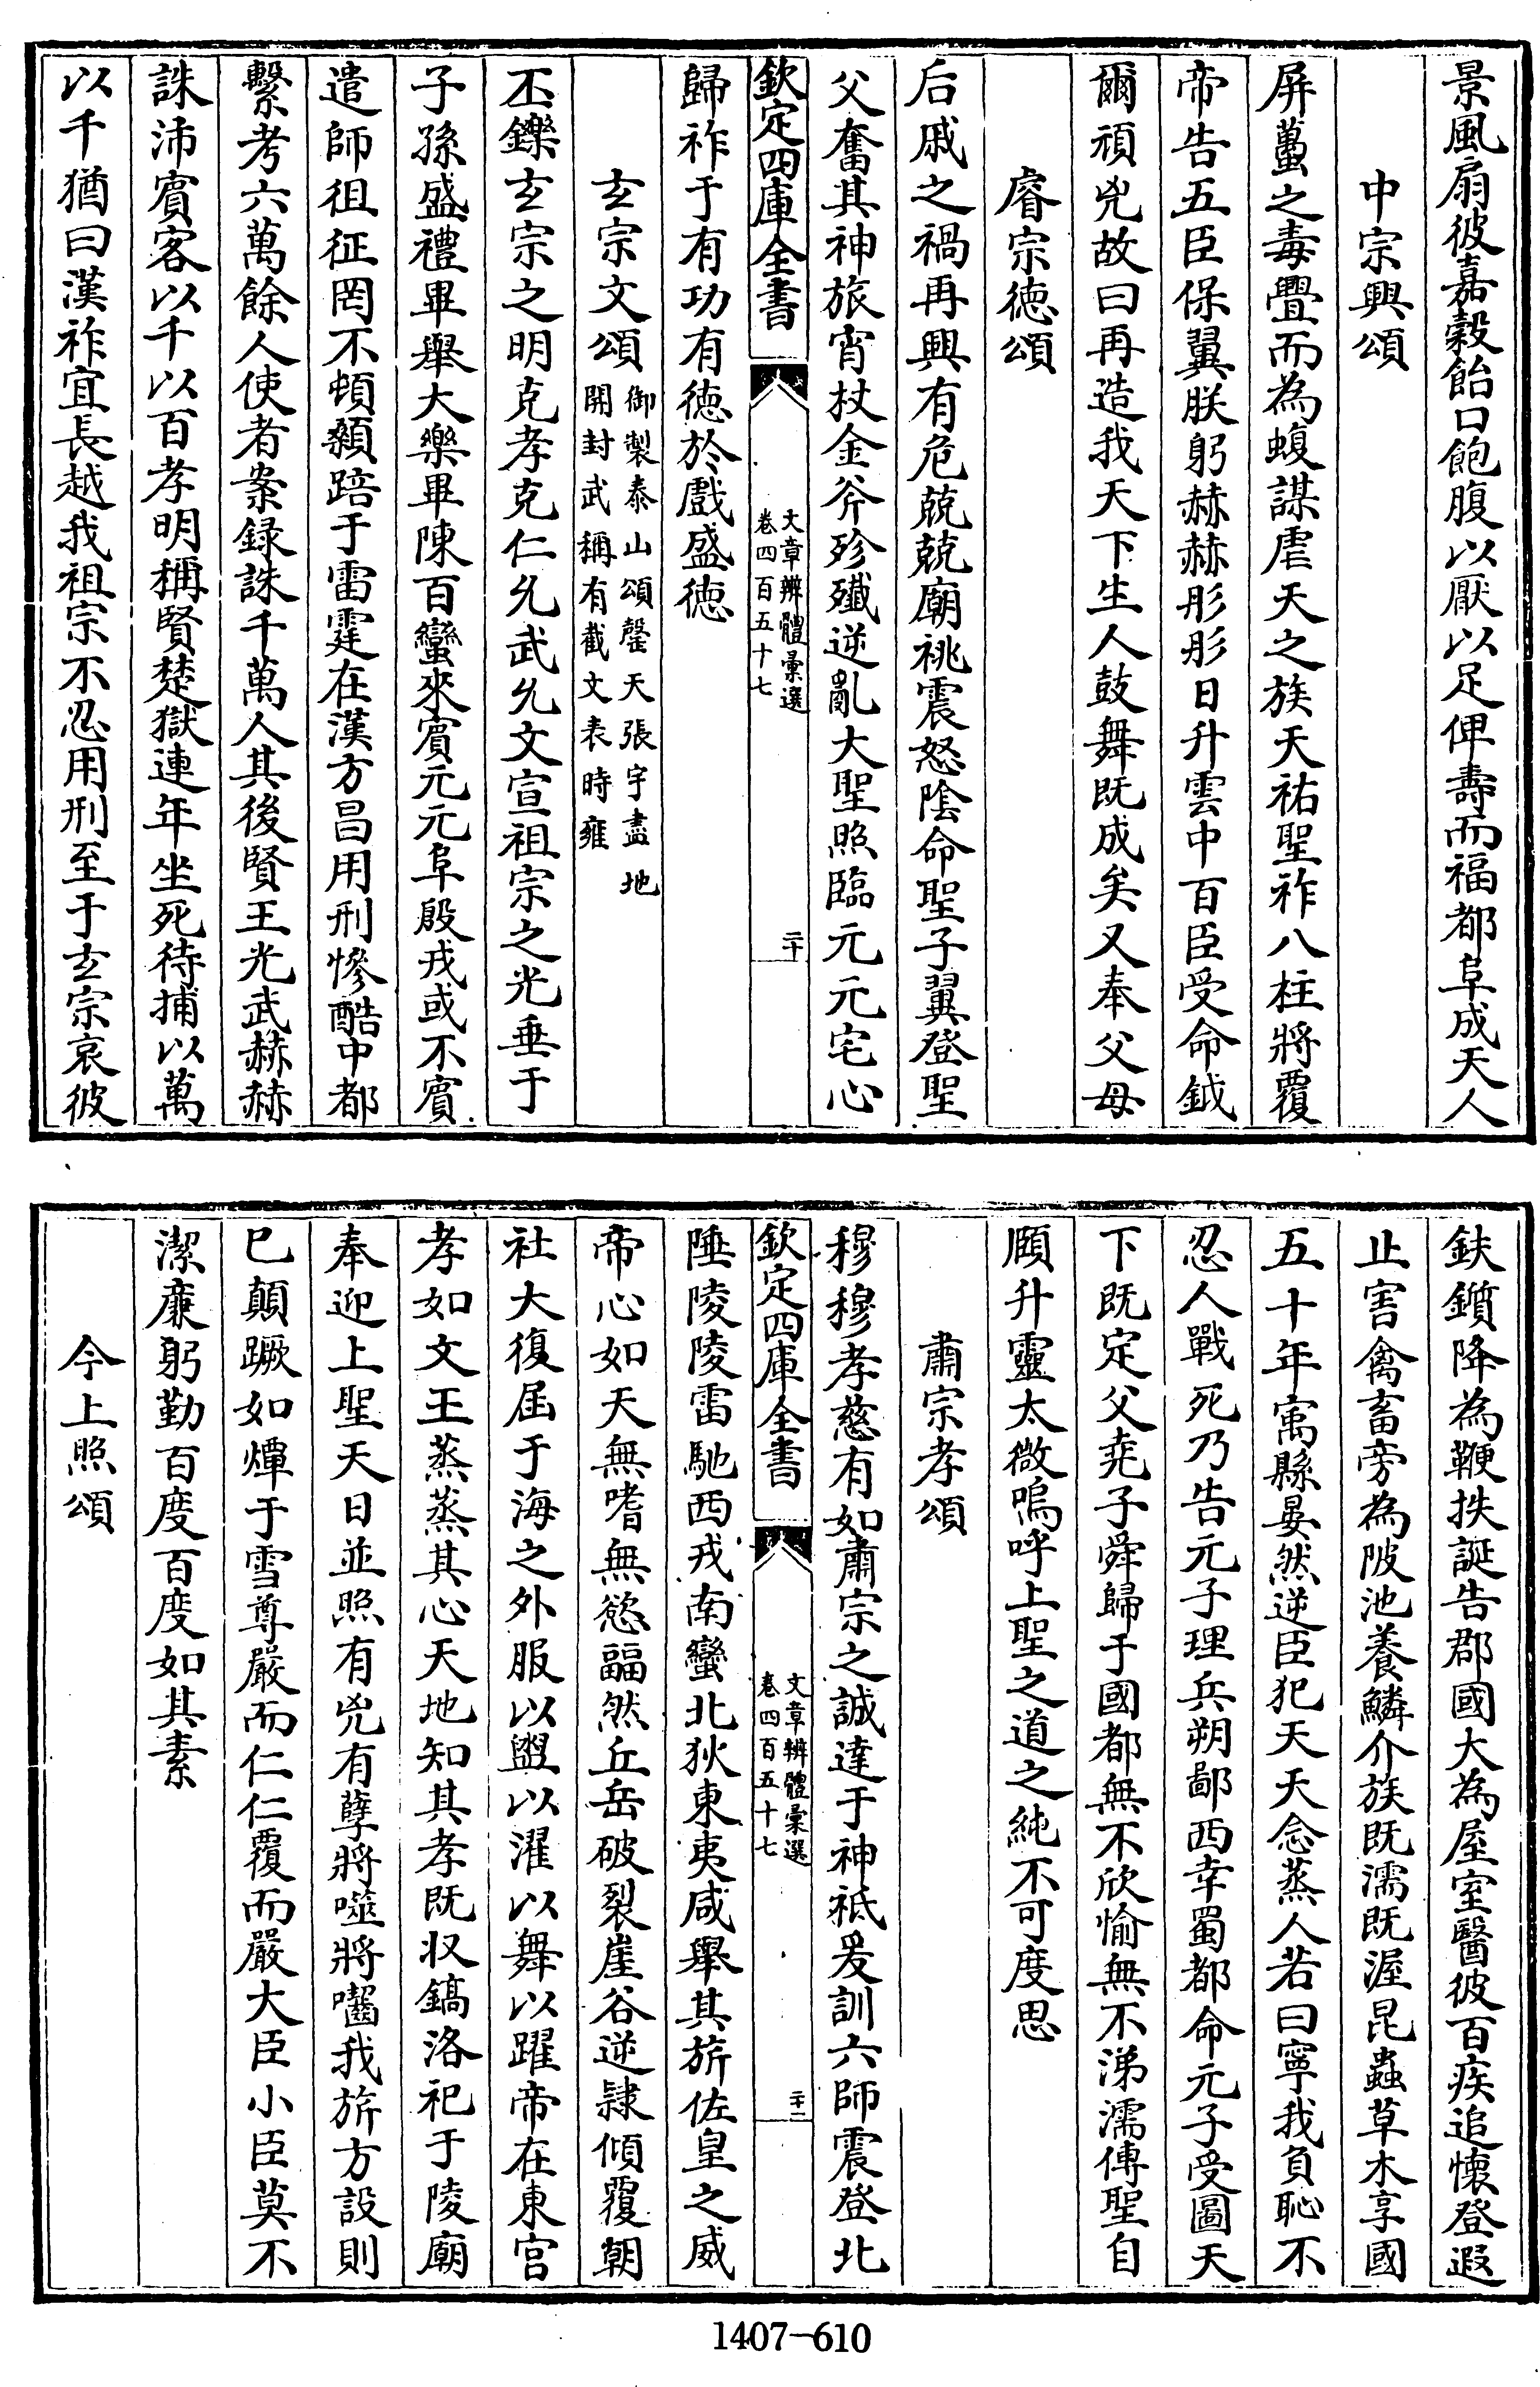 景風扇彼嘉榖飴口飽腹以厭以足俾壽而福都阜成天人
中宗興頌
屏蠆之毒疊而為蝮謀虐天之族天祐聖祚八柱將覆
帝告五臣保翼朕躬赫赫彤彤日升雲中百臣受命鉞
爾頑兇故曰再造我天下生人鼓舞既成矣又奉父母
睿宗徳頌
后戚之禍再興有危兢兢廟祧震怒陰命聖子翼登聖
父奮其神旅宵杖金斧殄殲逆亂大聖照臨元元宅心
欽定四庫全書
文章辨體彙選
卷四百五十七
二十
歸祚于有功有徳於戲盛徳
玄宗文頌
御製泰山頌罄天張宇盡地
開封武稱有截文表時雍
丕鑠玄宗之明克孝克仁允武允文宣祖宗之光垂于
子孫盛禮畢舉大樂畢陳百蠻來賓元元阜殷戎或不賓
遣師徂征罔不頓顙踣于雷霆在漢方昌用刑慘酷中都
繫考六萬餘人使者案録誅千萬人其後賢王光武赫赫
誅沛賓客以千以百孝明稱賢楚獄連年坐死待捕以萬
以千猶曰漢祚宜長越我祖宗不忍用刑至于玄宗哀彼
鈇鑕降為鞭抶誕告郡國大為屋室醫彼百疾追懷登遐
止害禽畜旁為陂池養鱗介族既濡既渥昆蟲草木享國
五十年寓縣晏然逆臣犯天天念蒸人若曰寧我負恥不
忍人戰死乃告元子理兵朔鄙西幸蜀都命元子受圖天
下既定父堯子舜歸于國都無不欣愉無不涕濡傳聖自
頤升靈太微嗚呼上聖之道之純不可度思
肅宗孝頌
穆穆孝慈有如肅宗之誠達于神祗爰訓六師震登北
欽定四庫全書
文章辨體彙選
卷四百五十七
二十一
陲陵陵雷馳西戎南蠻北狄東夷咸舉其旂佐皇之威
帝心如天無嗜無慾疈然丘岳破裂崖谷逆隷傾覆朝
社大復屆于海之外服以盥以濯以舞以躍帝在東宫
孝如文王蒸蒸其心天地知其孝既収鎬洛祀于陵廟
奉迎上聖天日並照有兇有孽將噬將囓我旂方設則
已顛蹶如燀于雪尊嚴而仁仁覆而嚴大臣小臣莫不
潔亷躬勤百度百度如其素
今上照頌
1407—610